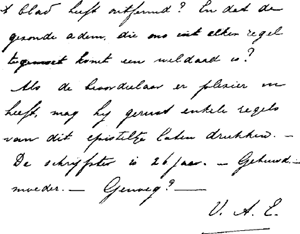 't blad heeft ontfermd? En dat de
gezonde adem, die ons uit elken regel
tegemoet komt een weldaad is?
Als de beoordeelaar er plezier in
heeft, mag hij gerust enkele regels
van dit episteltje laten drukken. —
De schrijfster is 26 jaar. — Gehuwd. —
moeder. — Genoeg? —
V. A. E.